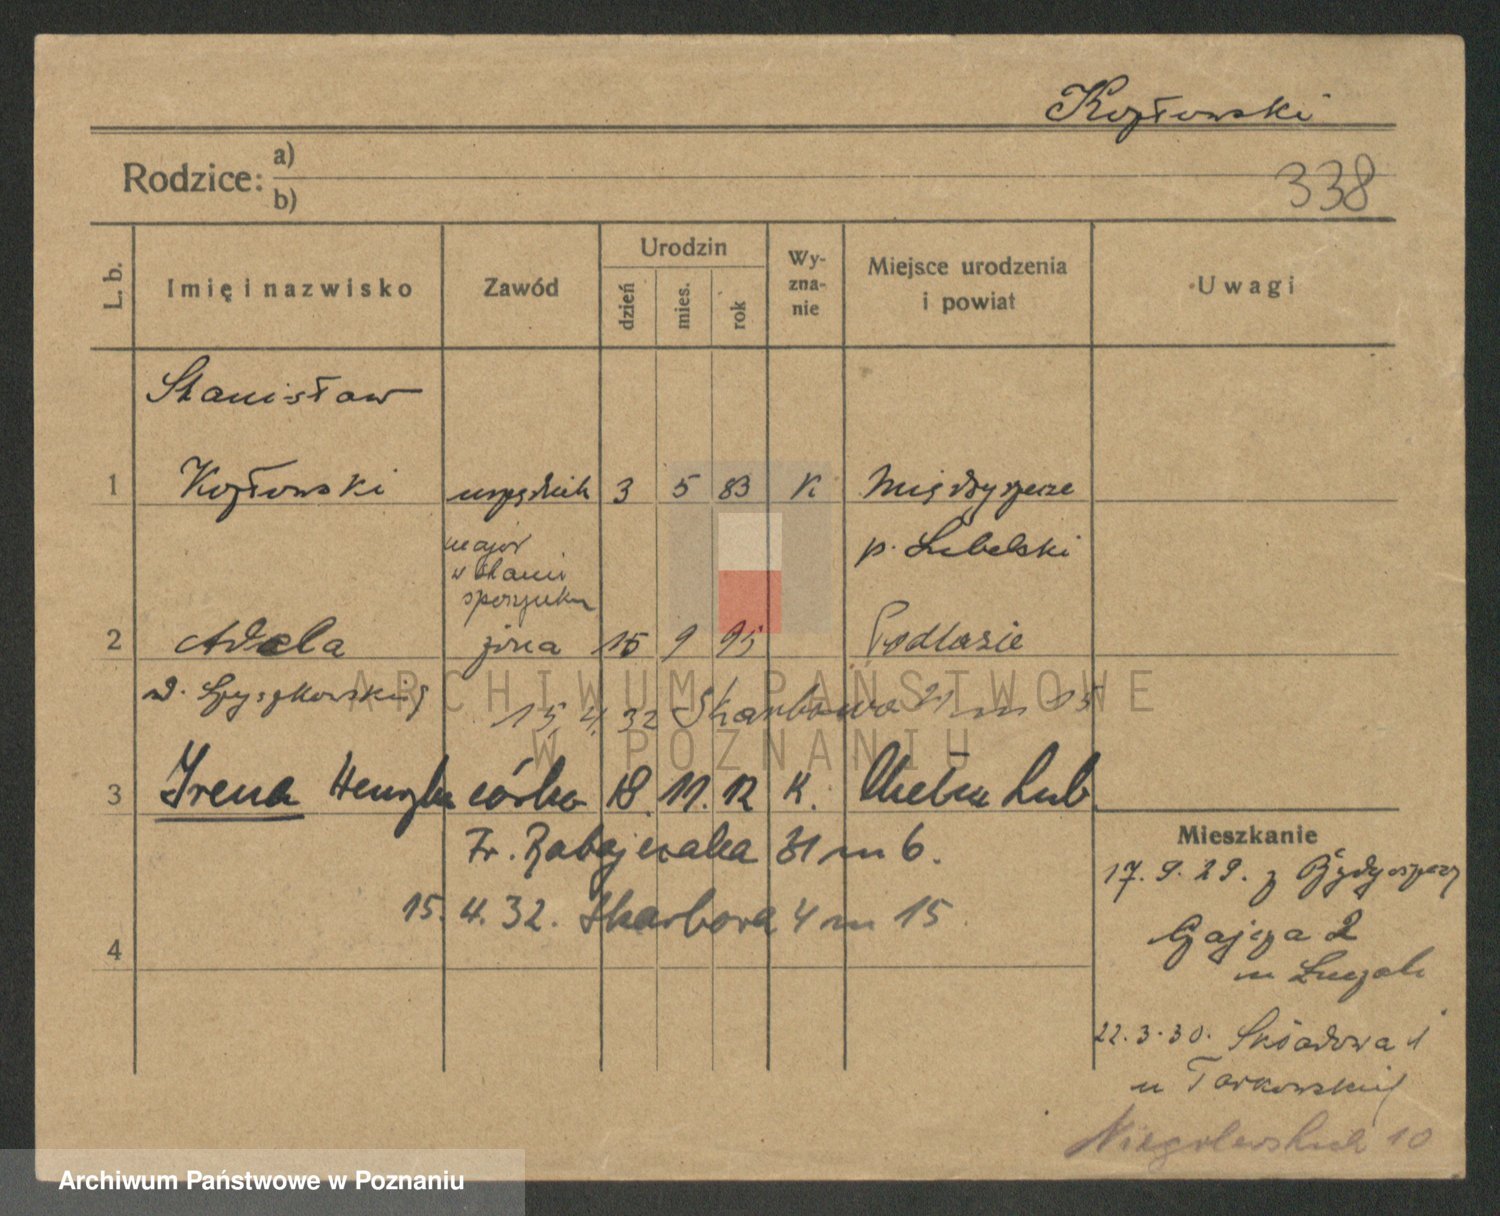 Kozłowski
Rodzice: a)
b)
338
L. b.
Imię i nazwisko
Zawód
Urodzin
dzień
mies.
rok
Wy-
zna-
nie
Miejsce urodzenia
i powiat
Uwagi
Stanisław
1 Kozłowski urzędnik 3 5 83 K Międzyrzecze
major p. Lubelski
w stanie
spoczynku
2 Adela żona 15 9 95 Podlasie
ARCHIWUM PAŃSTWOWE
15. 4. 32 Skarbowa 21 m 15
W POZNANIU
3 Irena córka 18. 11. 12 K. Chełm Lub.
Fr. Ratajczaka 31 m 6.
15. 4. 32. Skarbowa 4 m 15
4
Mieszkanie
17. 9. 29. z Bydgoszczy
Gajeza 2
u
22. 3. 30. Składowa 1
u Tarkowskiej
Niegolewskich 10
Archiwum Państwowe w Poznaniu